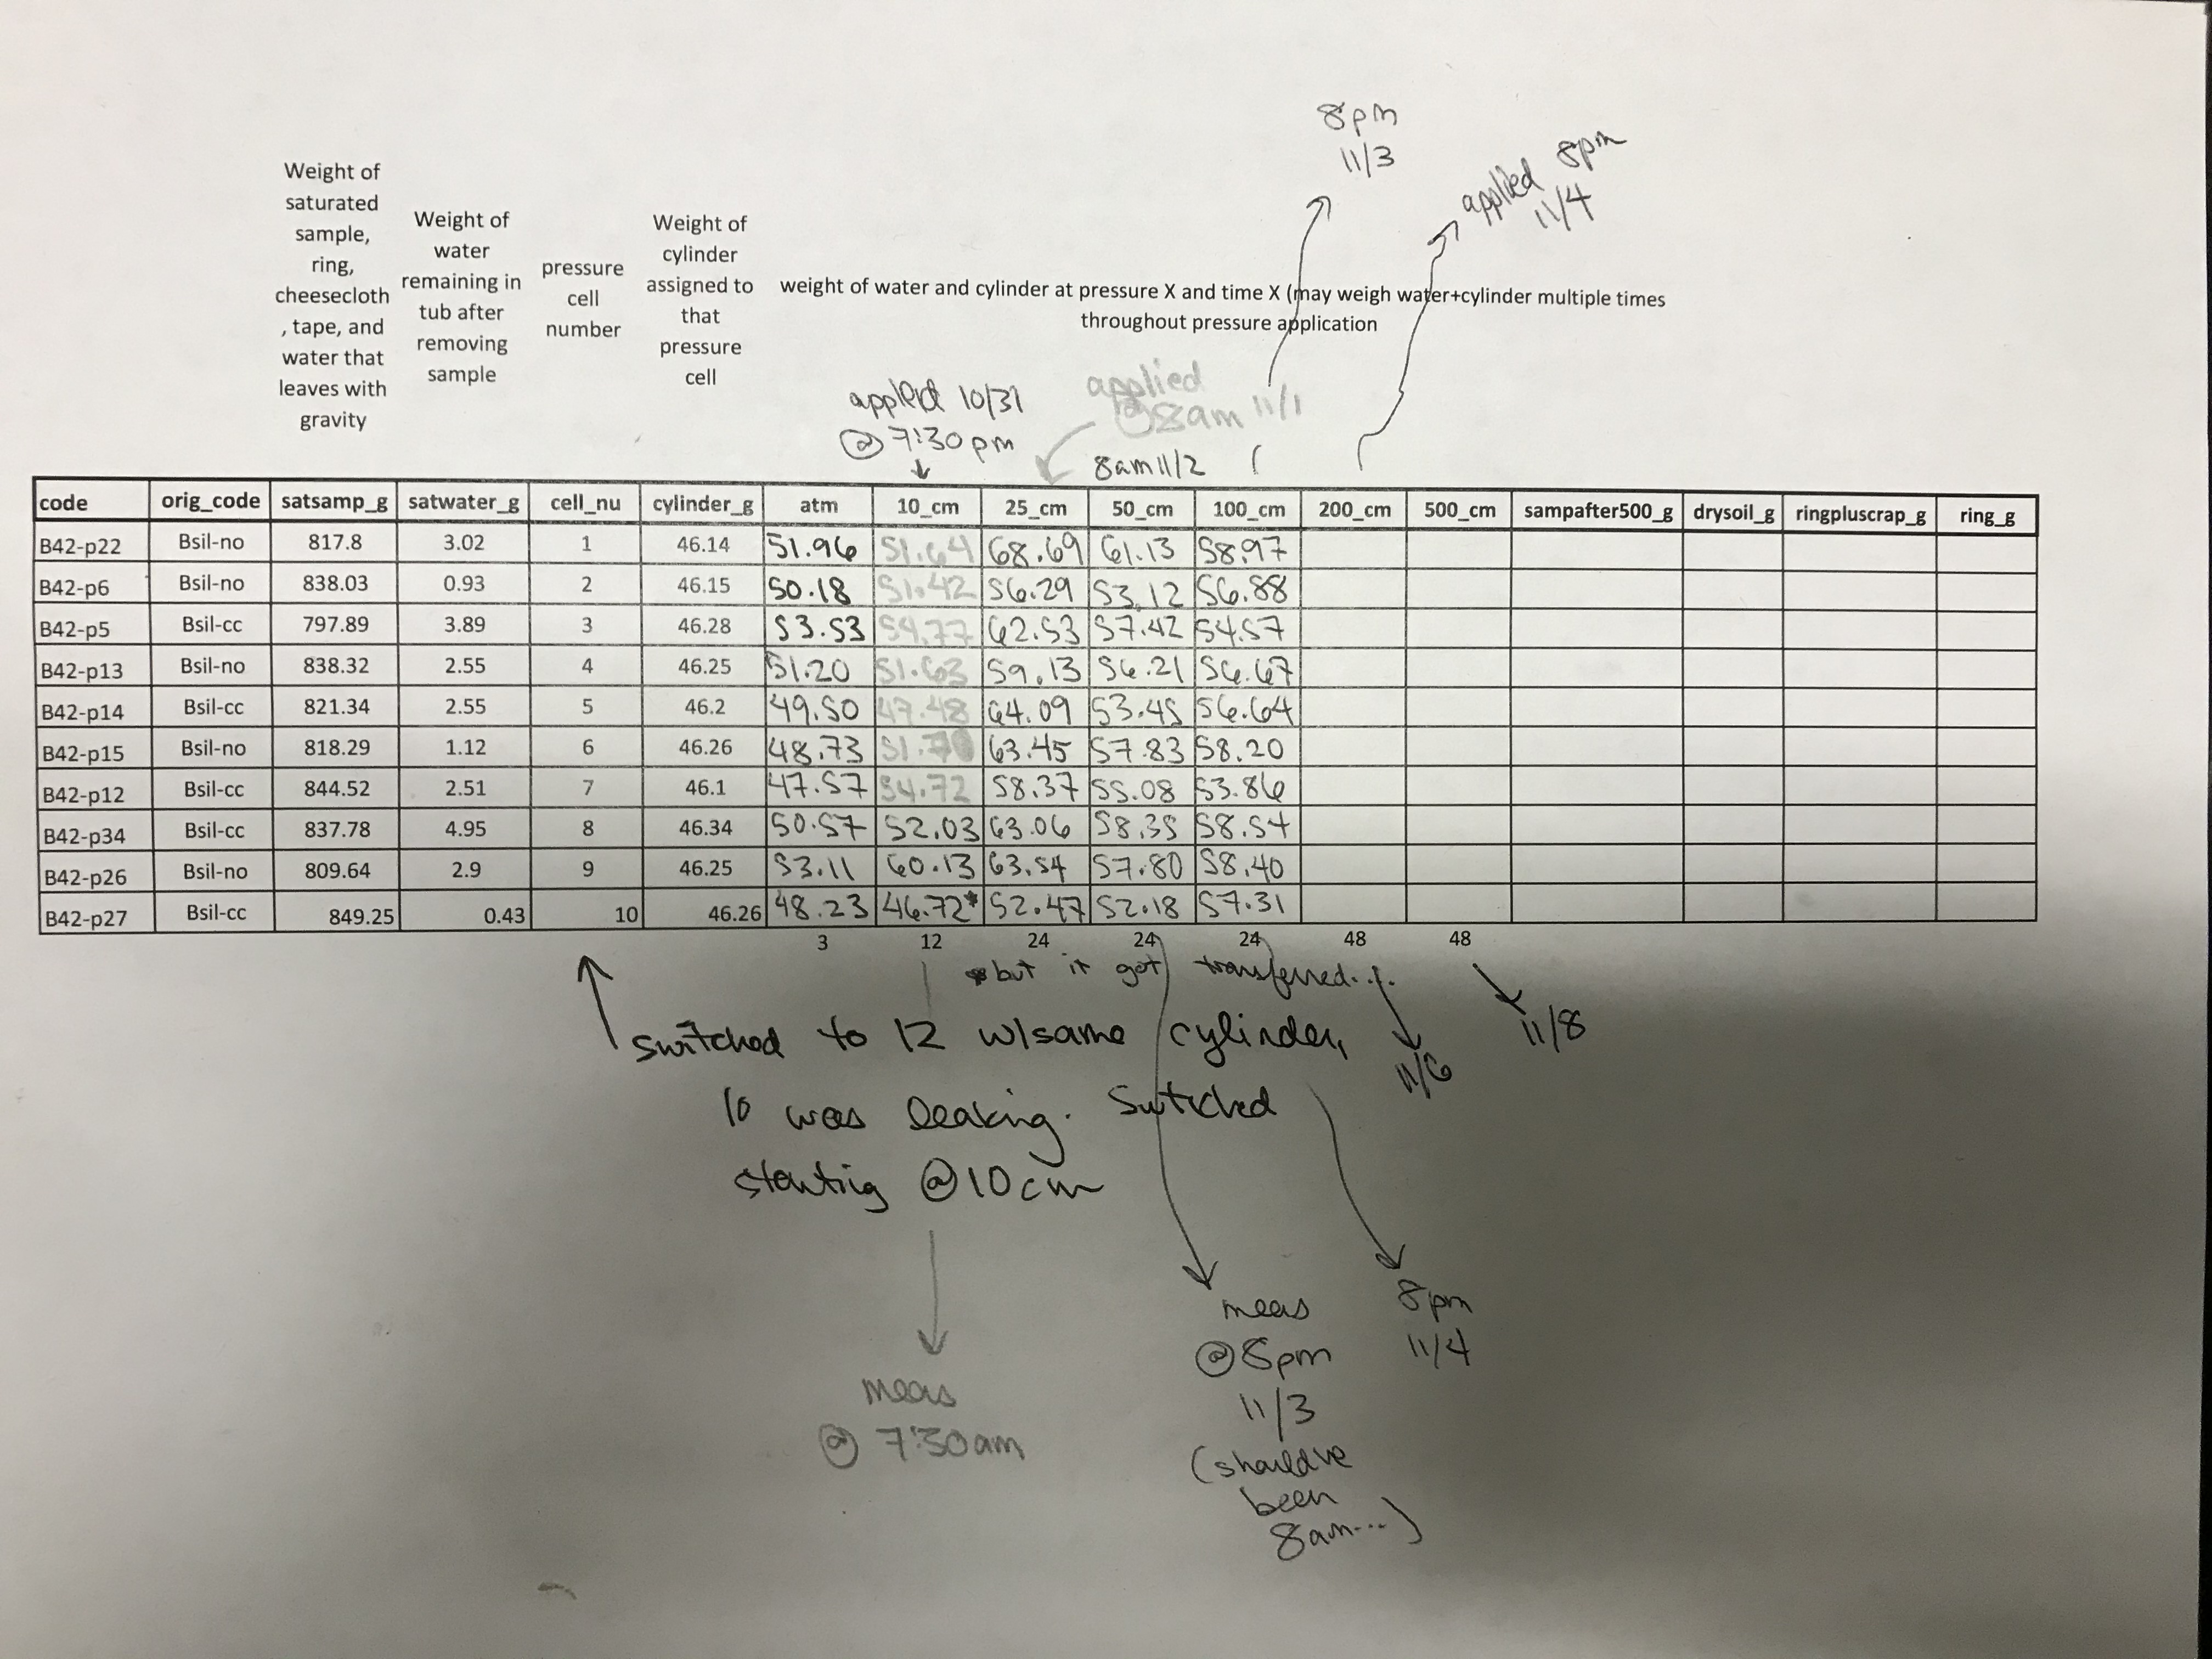 8pm
11/3
applied 8pm
11/4
Weight of
saturated
sample,
ring,
cheesecloth
, tape, and
water that
leaves with
gravity
Weight of
water
remaining in
tub after
removing
sample
pressure
cell
number
Weight of
cylinder
assigned to
that
pressure
cell
weight of water and cylinder at pressure X and time X (may weigh water+cylinder multiple times
throughout pressure application
applied 10/31
@ 7:30pm
applied
@8am 11/1
8am 11/2
code orig_code satsamp_g satwater_g cell_nu cylinder_g atm 10_cm 25_cm 50_cm 100_cm 200_cm 500_cm sampafter500_g drysoil_g ringpluscrap_g ring_g
B42-p22 Bsil-no 817.8 3.02 1 46.14 51.96 51.64 68.69 61.13 58.97
B42-p6 Bsil-no 838.03 0.93 2 46.15 50.18 51.42 56.29 53.12 56.88
B42-p5 Bsil-cc 797.89 3.89 3 46.28 53.53 54.77 62.53 57.42 54.57
B42-p13 Bsil-no 838.32 2.55 4 46.25 51.20 51.63 59.13 56.21 56.67
B42-p14 Bsil-cc 821.34 2.55 5 46.2 49.50 47.48 64.09 53.45 56.64
B42-p15 Bsil-no 818.29 1.12 6 46.26 48.73 63.45 57.83 58.20
B42-p12 Bsil-cc 844.52 2.51 7 46.1 47.57 54.72 58.37 55.08 53.86
B42-p34 Bsil-cc 837.78 4.95 8 46.34 50.57 52.03 63.06 58.35 58.54
B42-p26 Bsil-no 809.64 2.9 9 46.25 53.11 60.13 63.54 57.80 58.40
B42-p27 Bsil-cc 849.25 0.43 10 46.26 48.23 46.72* 52.47 52.18 57.31
3 12 24 24 24 48 48
*but it got transferred...
switched to 12 w/same cylinder,
10 was leaking. Switched
starting @10cm
11/6
11/8
meas
@ 7:30am
meas
@8pm
11/3
(should've
been
8am...)
8pm
11/4